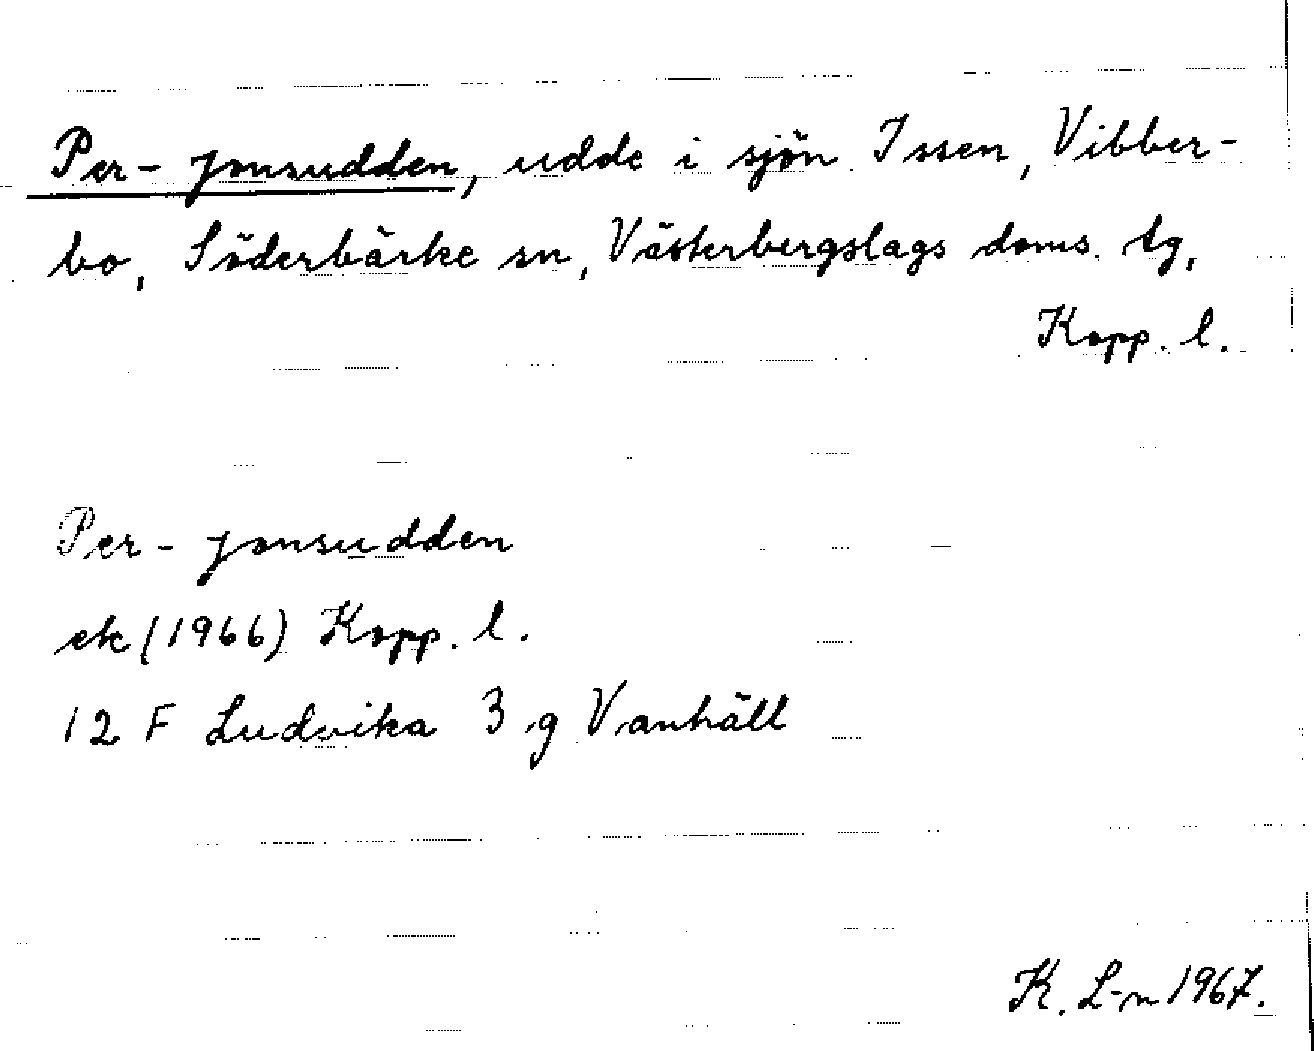 Per-jonsudden, udde i sjön Issen, Vibber-
bo, Söderbärke sn, Västerbergslags doms. tg,
Kopp. l.
Per-jonsudden
ek (1966) Kopp. l.
12 F Ludvika 3 g Vanhäll
K. L-n 1967.